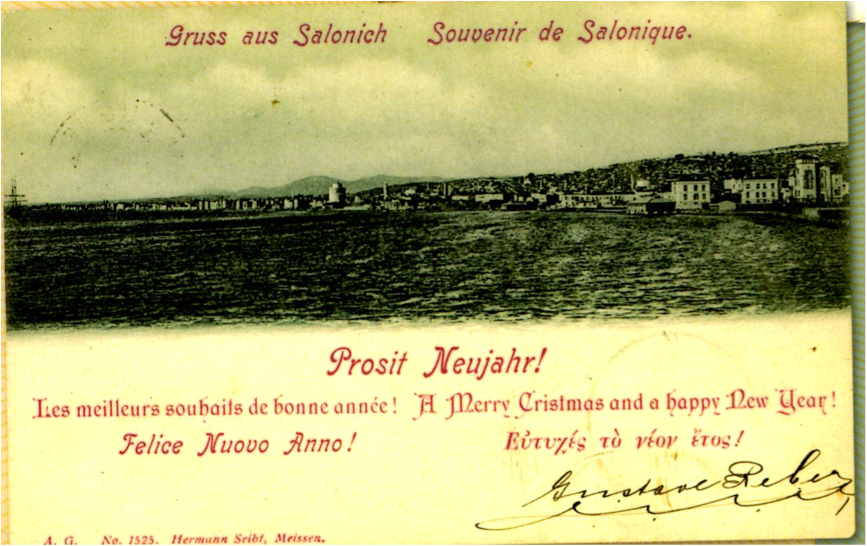 Gruss aus Salonich Souvenir de Salonique.
Prosit Neujahr!
Les meilleurs souhaits de bonne année! A Merry Cristmas and a happy New Year!
Felice Nuovo Anno! Εὐτυχές τὸ νέον ἔτος!
Gustave Reber
A. G. No. 1525. Hermann Seibt, Meissen.